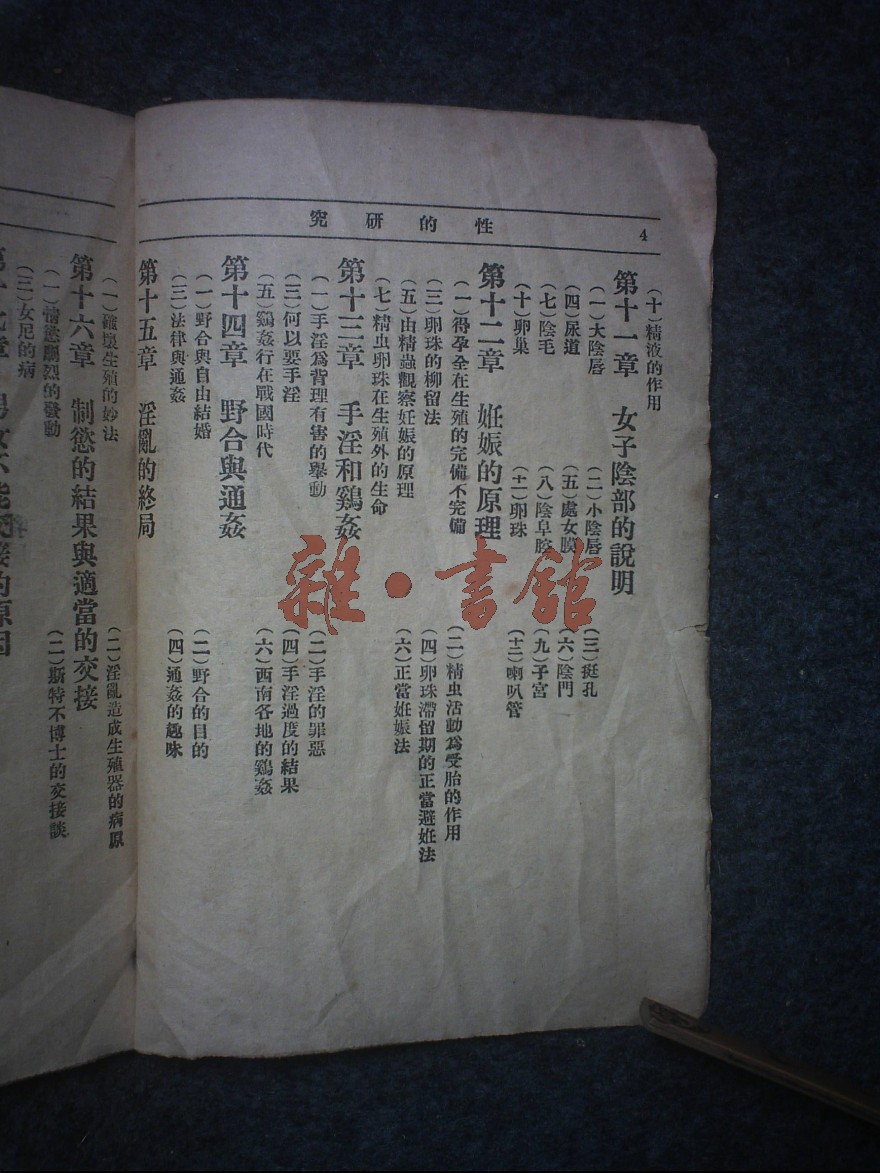 性的研究
4
(十)精液的作用
第十一章 女子陰部的說明
(一)大陰唇 (二)小陰唇 (三)挺孔
(四)尿道 (五)處女膜 (六)陰門
(七)陰毛 (八)陰阜腔 (九)子宮
(十)卵巢 (十一)卵珠 (十二)喇叭管
第十二章 妊娠的原理
(一)得孕全在生殖的完備不完備 (二)精虫活動爲受胎的作用
(三)卵珠的柳留法 (四)卵珠滯留期的正當避妊法
(五)由精蟲觀察妊娠的原理 (六)正當妊娠法
(七)精虫卵珠在生殖外的生命
第十三章 手淫和鷄姦
(一)手淫爲背理有害的舉動 (二)手淫的罪惡
(三)何以要手淫 (四)手淫過度的結果
(五)鷄姦行在戰國時代 (六)西南各地的鷄姦
第十四章 野合與通姦
(一)野合與自由結婚 (二)野合的目的
(三)法律與通姦 (四)通姦的趣味
第十五章 淫亂的終局
(一)確壞生殖的妙法 (二)淫亂造成生殖器的病原
第十六章 制慾的結果與適當的交接
(一)情慾劇烈的發動 (二)斯特不博士的交接談
(三)女尼的病
雜·書館